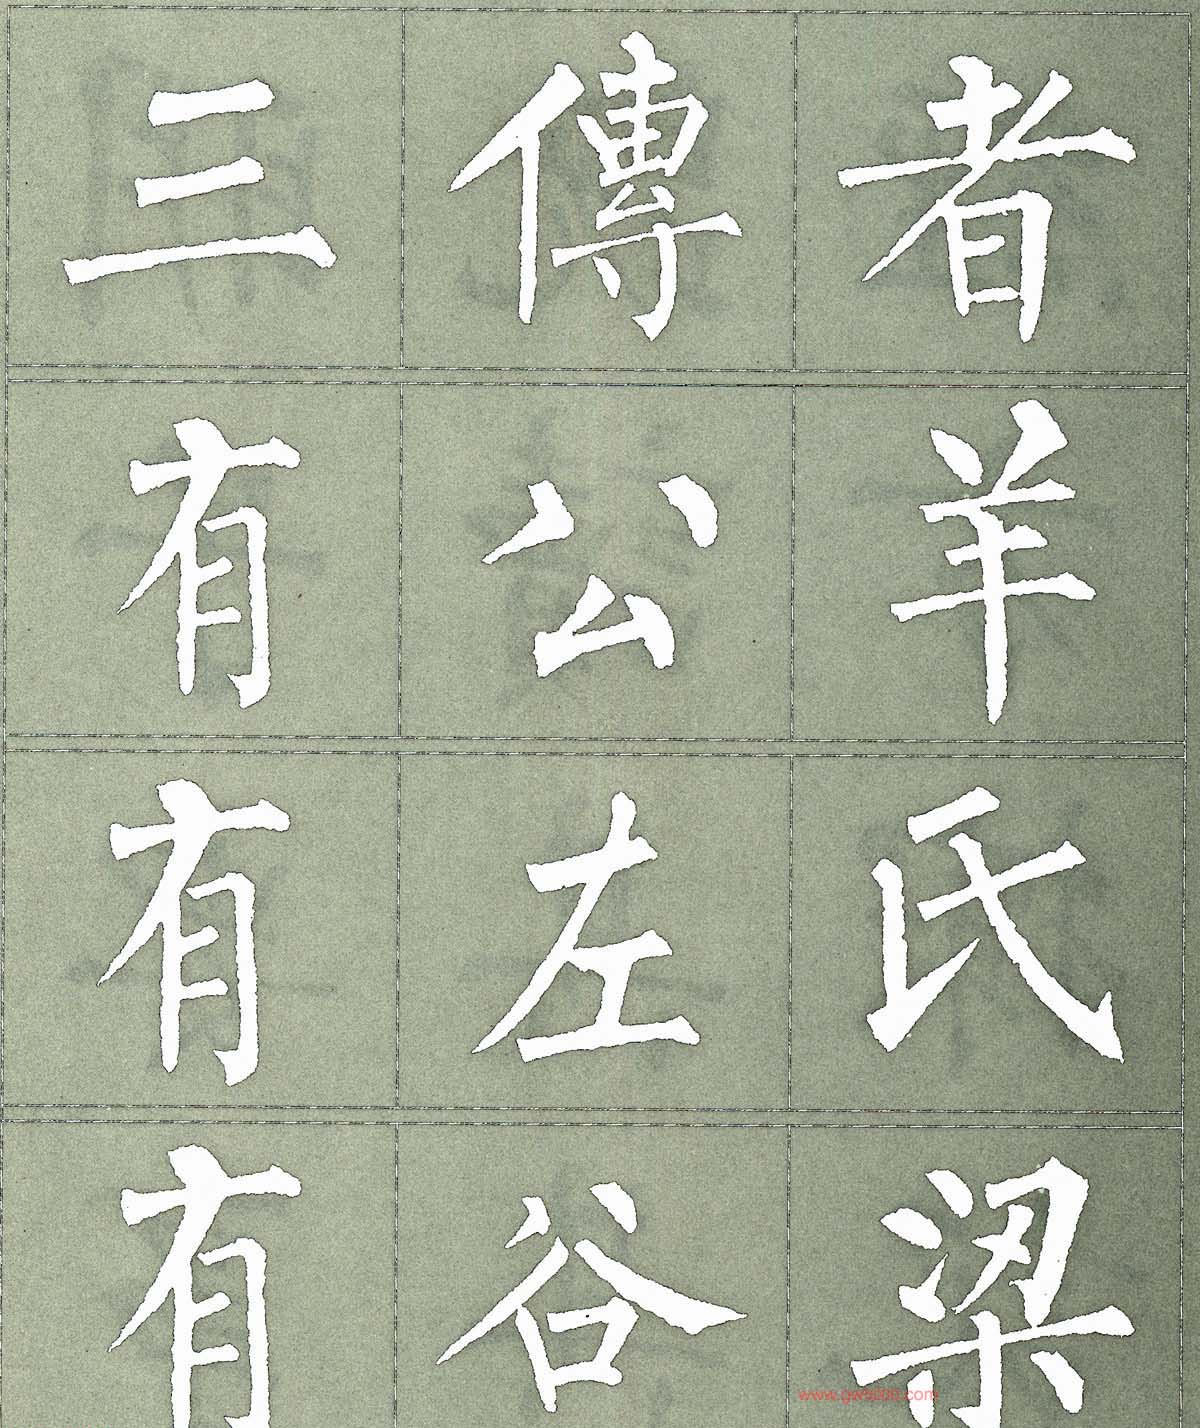 三傳者
有公羊
有左氏
有谷梁